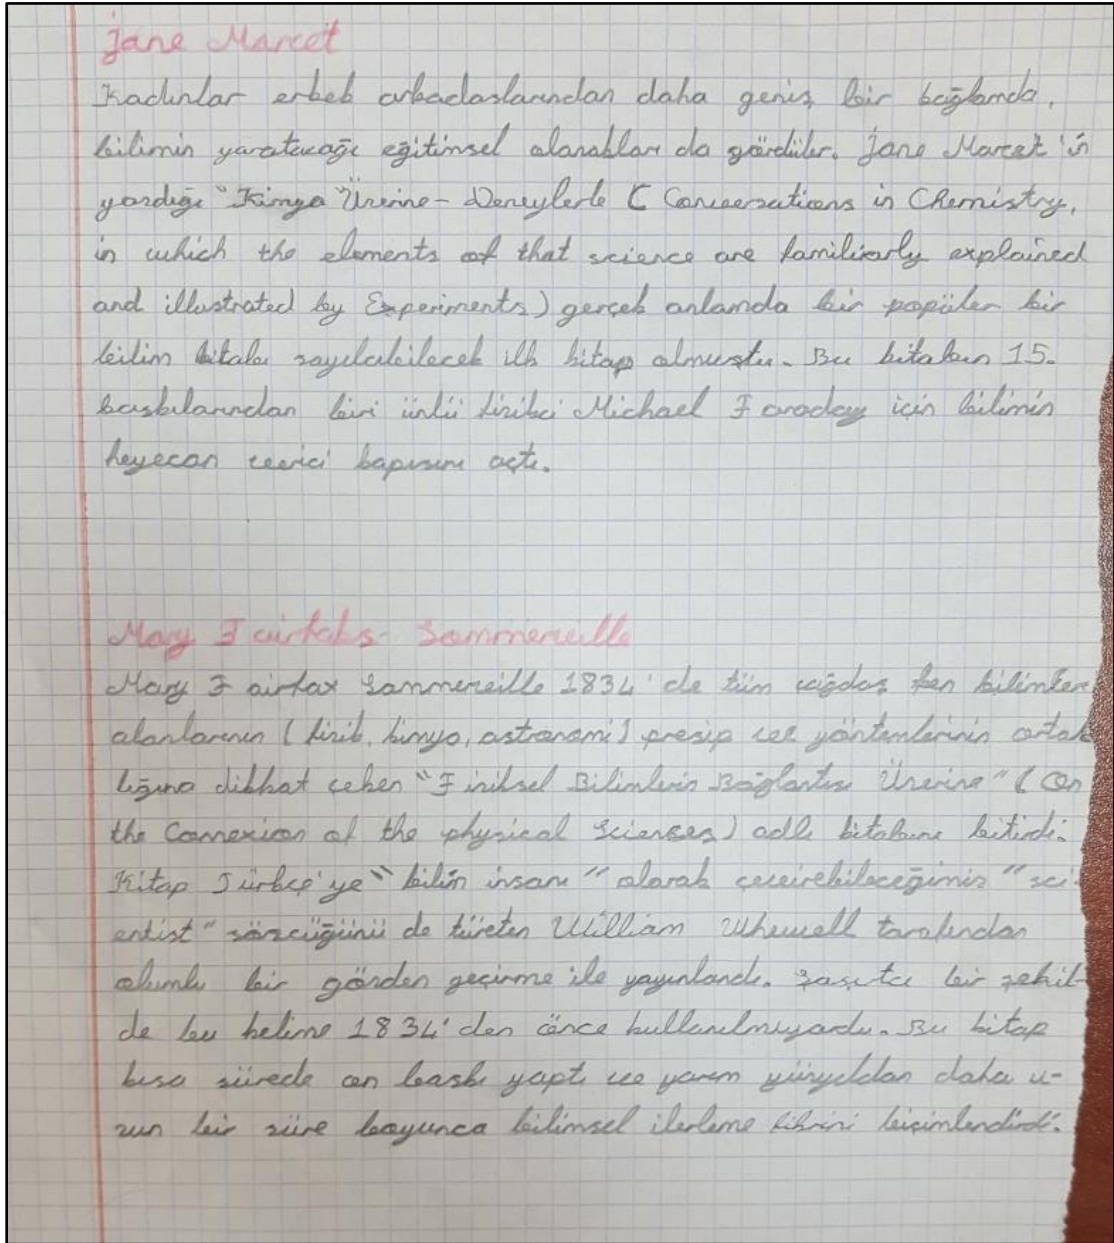 Jane Marcet
Kadınlar erkek arkadaslarından daha geniş bir bağlamda,
bilimin yaratacağı eğitimsel olanakları da gördüler. Jane Marcet'in
yazdığı "Kimya Üzerine - Deneylerle ( Conversations in Chemistry,
in which the elements of that science are familiarly explained
and illustrated by Experiments) gerçek anlamda bir popüler bir
bilim kitabı sayılabilecek ilk kitap olmuştu. Bu kitabın 15.
baskılarından biri ünlü fizikçi Michael Faraday için bilimin
heyecan verici kapısını açtı.
Mary Fairfaks- Sommerville
Mary Fairfax Sommerville 1834'de tüm çağdaş fen bilimleri
alanlarının (fizik, kimya, astronomi) presip ve yöntemlerinin ortak
lığına dikkat çeken "Fiziksel Bilimlerin Bağlantısı Üzerine" (On
the Connexion of the physical Sciences) adlı kitabını bitirdi.
Kitap Türkçe'ye "bilim insanı" olarak çevirebileceğimiz "sci-
entist" sözcüğünü de türeten William Whewell tarafından
olumlu bir gözden geçirme ile yayınlandı. Şaşırtıcı bir şekil-
de bu kelime 1834'den önce kullanılmıyordu. Bu kitap
kısa sürede on baskı yaptı ve yarım yüzyıldan daha u-
zun bir süre boyunca bilimsel ilerleme fikrini biçimlendirdi.